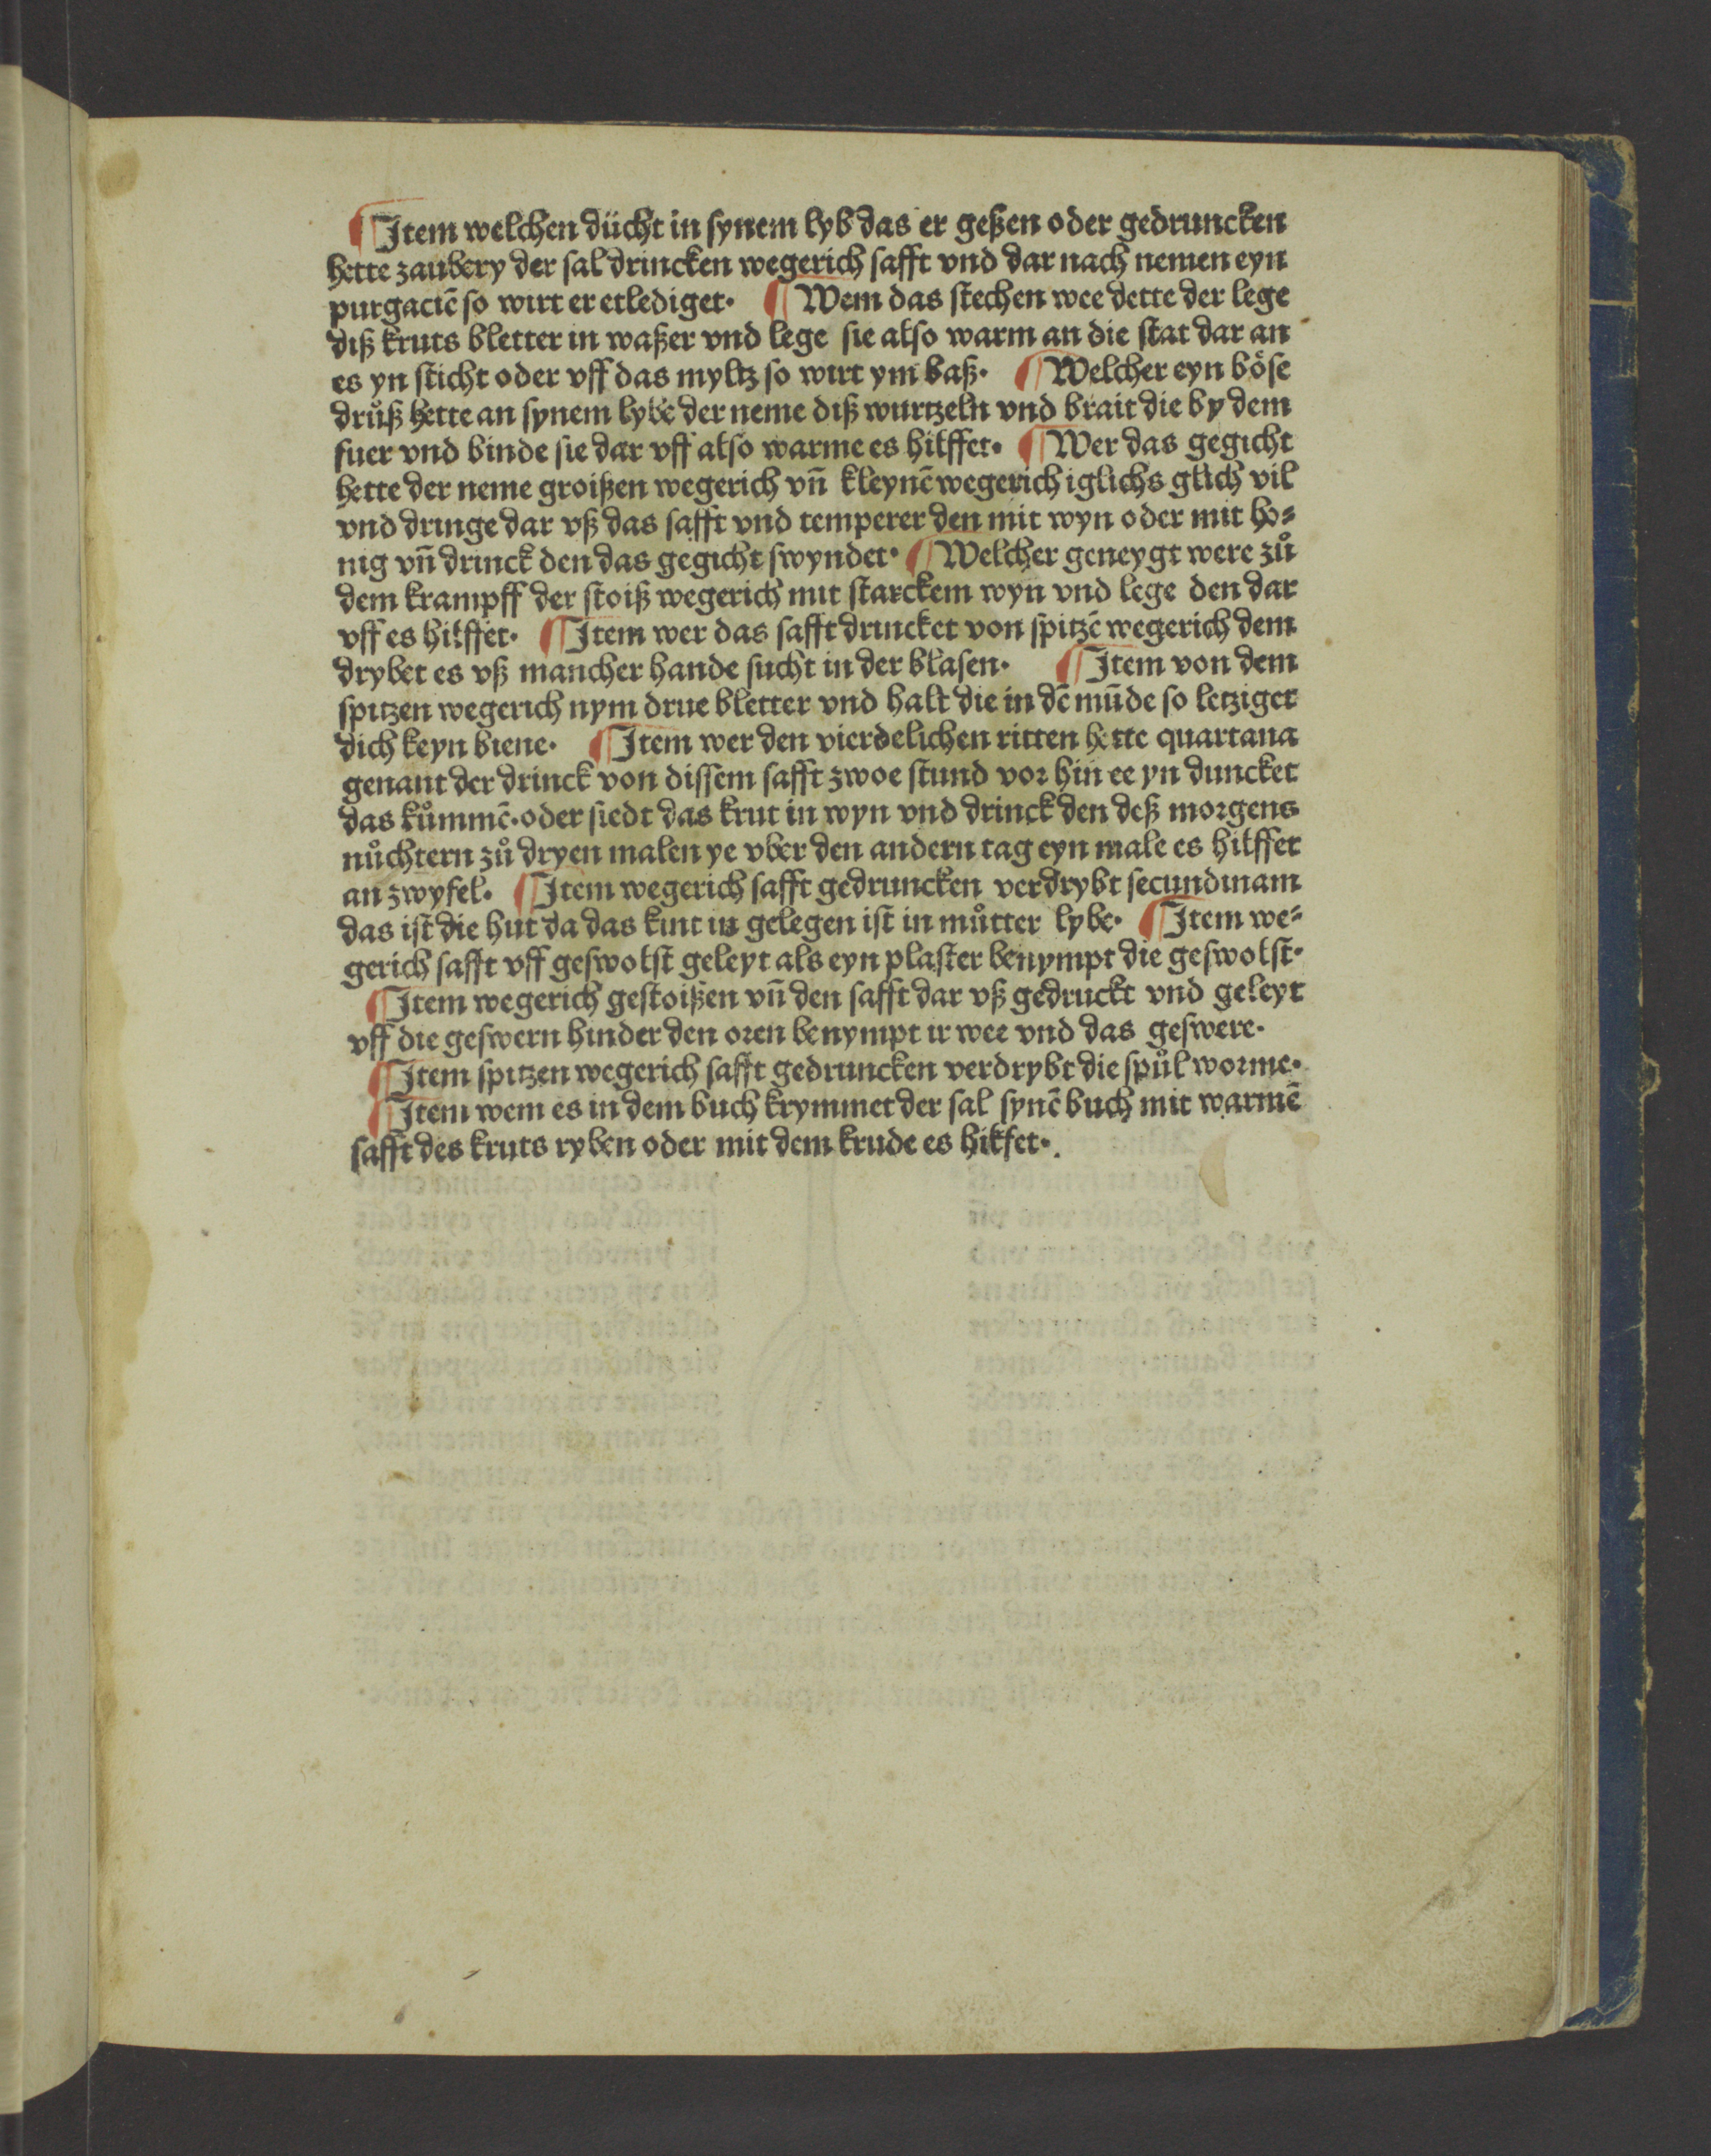 ¶ Item welchen dücht in synem lyb das er geßen oder gedruncken
hette zaubery der sal drincken wegerich safft vnd dar nach nemen eyn
purgaciē so wirt er erlediget· ¶ Wem das stechen wee dette der lege
diß kruts bletter in waßer vnd lege sie also warm an die stat dar an
es yn sticht oder vff das myltz so wirt ym baß· ¶ Welcher eyn böse
drůß hette an synem lybe der neme diß wurtzeln vnd brait die by dem
fuer vnd binde sie dar vff also warme es hilffet· ¶ Wer das gegicht
hette der neme groißen wegerich vn̄ kleynē wegerich iglichs glich vil
vnd dringe dar vß das safft vnd temperer den mit wyn oder mit ho⸗
nig vn̄ drinck den das gegicht swyndet· ¶ Welcher geneygt were zů
dem krampff der stoiß wegerich mit starckem wyn vnd lege den dar
vff es hilffet· ¶ Item wer das safft drincket von spitzē wegerich dem
drybet es vß mancher hande sucht in der blasen· ¶ Item von dem
spitzen wegerich nym drue bletter vnd halt die in dē mūde so letziget
dich keyn biene· ¶ Item wer den vierdelichen ritten hette quartana
genant der drinck von dissem safft zwoe stund vor hin ee yn duncket
das kůmmē· oder siedt das krut in wyn vnd drinck den deß morgens
nůchtern zů dryen malen ye vber den andern tag eyn male es hilffet
an zwyfel· ¶ Item wegerich safft gedruncken verdrybt secundinam
das ist die hut da das kint in gelegen ist in můtter lybe· ¶ Item we⸗
gerich safft vff geswolst geleyt als eyn plaster benympt die geswolst·
¶ Item wegerich gestoißen vn̄ den safft dar vß gedruckt vnd geleyt
vff die geswern hinder den oren benympt ir wee vnd das geswere·
¶ Item spitzen wegerich safft gedruncken verdrybt die spůl worme·
¶ Item wem es in dem buch krymmet der sal synē buch mit warmē
safft des kruts ryben oder mit dem krude es hilfet·